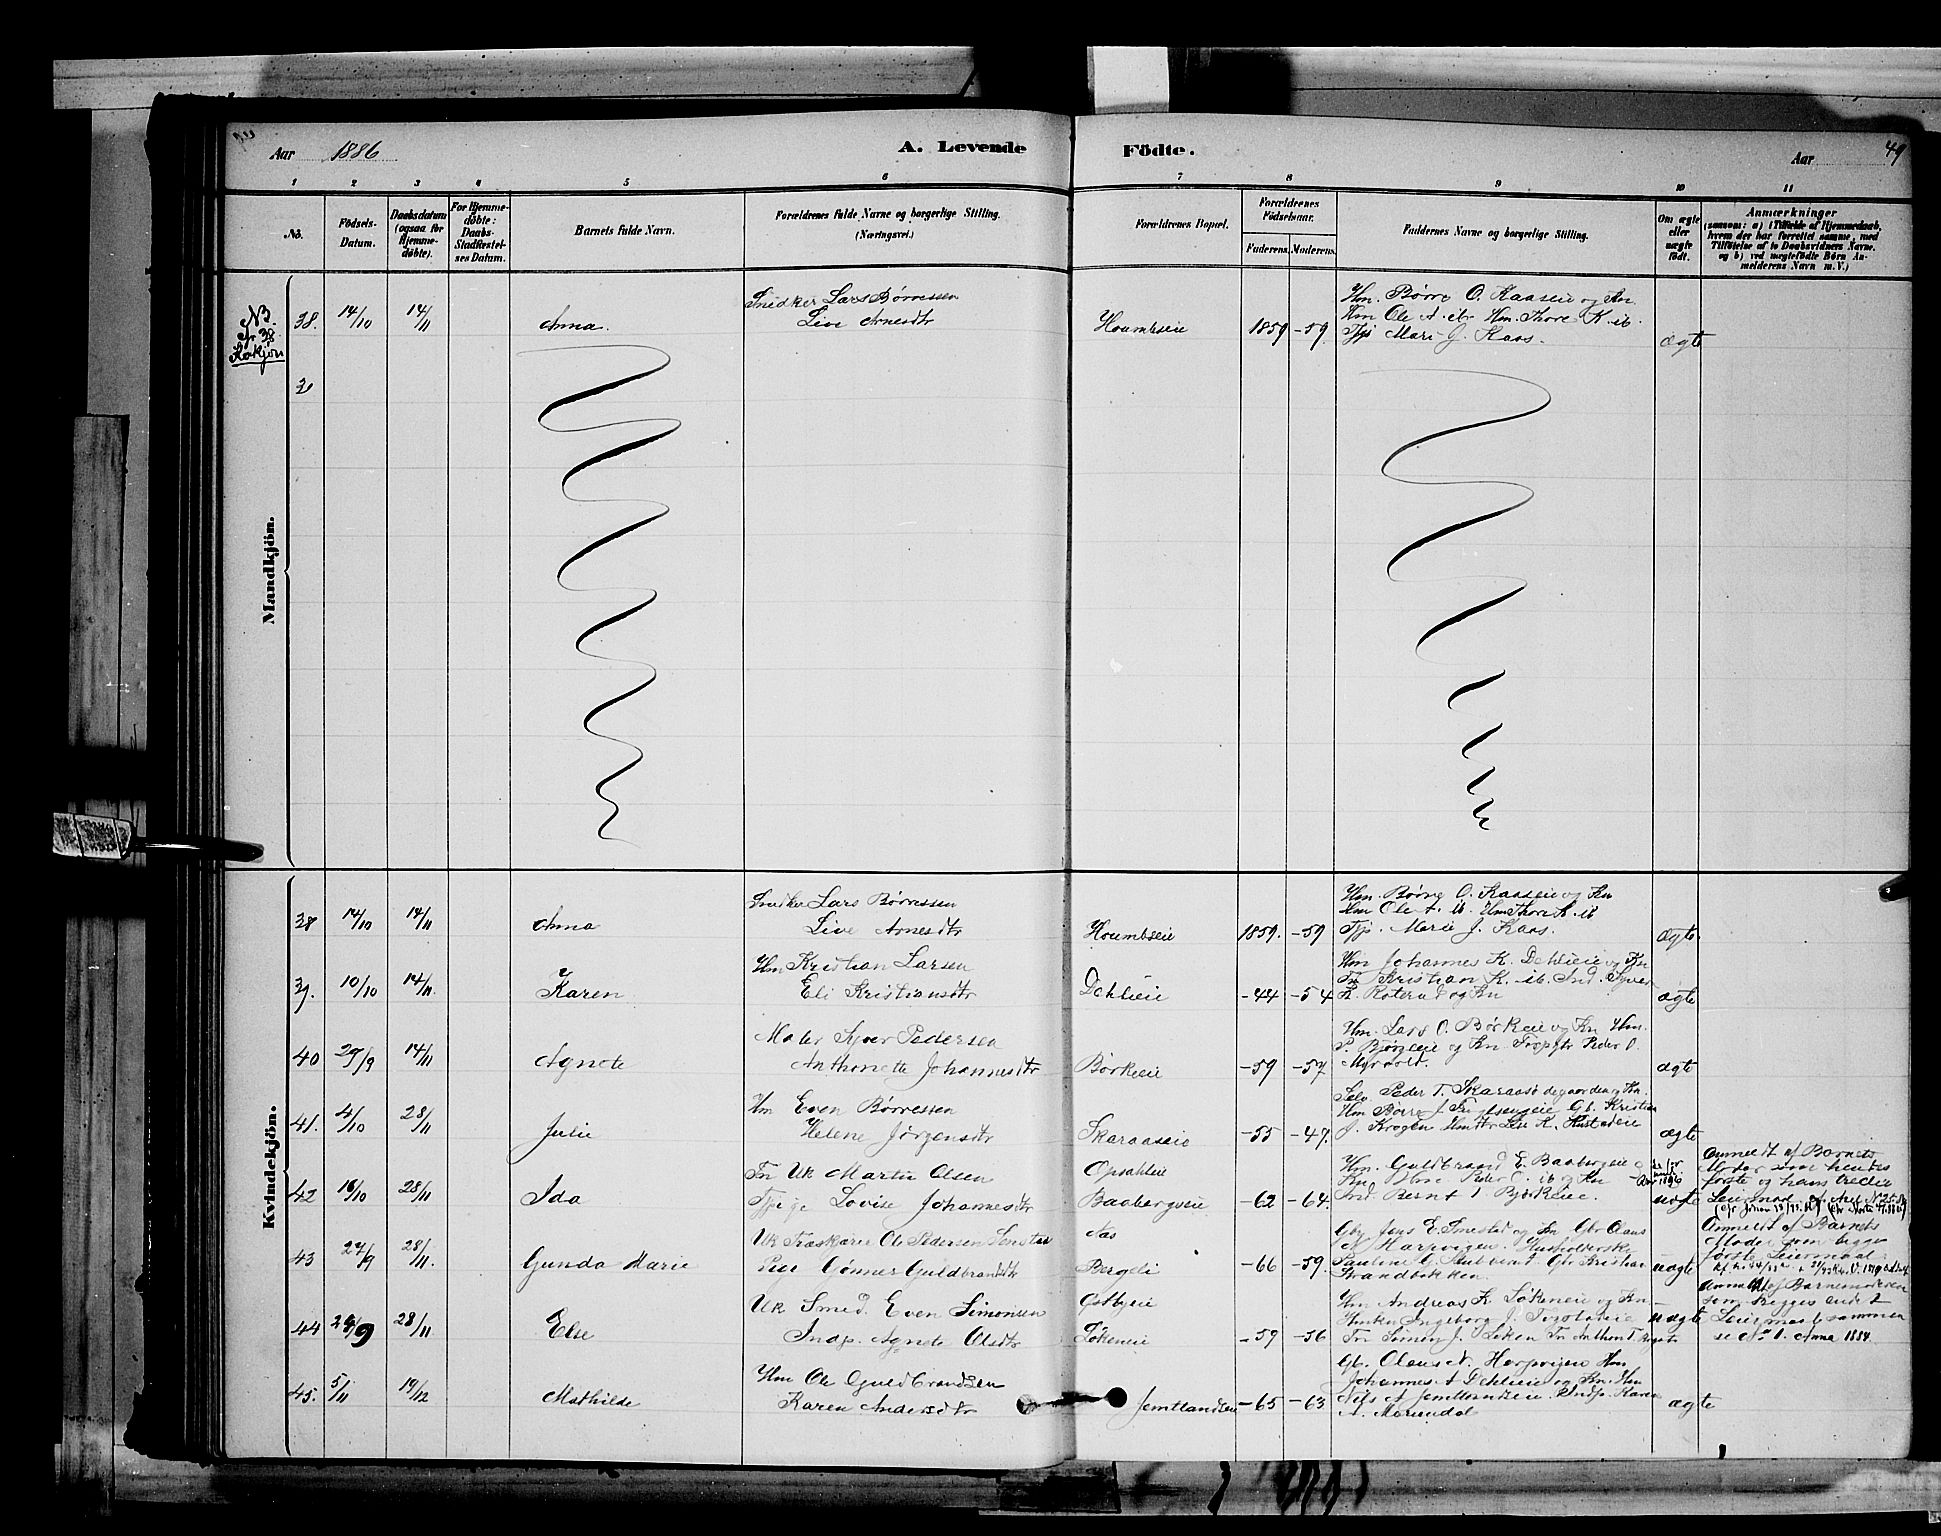 Aar 1886
A. Levende
Födte.
Aar
49
1 2 3 4 5 6 7 8 9 10 11
No.
Födsels-Datum.
Daabsdatum (ogsaa for Hjemme-döbte).
For Hjemme-döbte: Daabs-Stadfæstel-ses Datum.
Barnets fulde Navn.
Forældrenes fulde Navne og borgerlige Stilling. (Næringsvei.)
Forældrenes Bopæl.
Forældrenes Födselsaar.
Faderens Moderens.
Faddernes Navne og borgerlige Stilling.
Om ægte eller uægte födt.
Anmærkninger
(saasom: a) i Tilfælde af Hjemmedaab, hvem der har forrettet samme, med Tilföielse af to Daabsvidners Navne, og b) ved uægtefödte Börn An-melderens Navn m. V.)
Mandkjön.
NB.
38
38. 14/10 14/11 Anna.
Snidker Lars Børresen
Live Arnesdtr
Houmbseie 1859 -59.
Hm. Børre O. Kaaseie og Kn.
Hm Ole A. ib. Hm. Thore K. ib.
Mari J. Kaas.
ægte
3
Kvindekjön.
38 14/10 14/11 Anna
Snidker Lars Børresen
Live Arnesdtr
Houmbseie 1859. -59
Hm. Børre O. Kaaseie og Kn
Hm Ole A. ib. Hm Thore K. ib
Marie J. Kaas.
ægte.
39. 10/10 14/11 Karen
Hm Kristian Larsen
Eli Kristiansdtr
Dehlieie -44 -54
Hm Johannes K. Dehlieie og Kn
Kristian K. ib. Ind. Syver
K. Roterud og Kn
ægte
40 29/9 14/11 Agnete
Maler Syver Pedersen
Anthonette Johannesdtr
Børkeeie -59 -57
Hm. Lars O. Børkeie og Kn Hm.
P. Bjørgeeie og Kn. Peder O.
Myrvold.
ægte
41. 4/10 28/11 Julie
Hm Even Børresen
Helene Jørgensdtr
Skaraaseie -55 -47.
Selv. Peder T. Skaraas og Kn.
Hm Børre J. Gb. Kristian
J. Krogen
ægte
42 16/10 28/11 Ida
Uk Martin Olsen
Pige Lovise Johannesdtr
Opsahleie
Baabergseie -62 -64.
Hm. Guldbrand E. Baabergseie
Hm. Peder O. ib og Kn
Ind. Bernt T. Bjørkeie.
uægte
Anmeldt af Barnets
Moder som hendes
første og hans tredie
Leiermaal.
43 27/9 28/11 Gunda Marie
Uk Træskærer Ole Pedersen
Pige Gønner Guldbrandsdtr
Aas
Bergeli -66 -59.
Gbr Jens E. Smestad og Kn Gbr Olaus
A Harpvigen. Husholderske
Pauline G. Stubberud Gbr Kristian
Strandbakken
uægte
Anmeldt af Barnets
Moder som begges
første Leiermaal.
44 28/11 Else
Uk Smed. Even Simonsen
Indp. Agnete Olsdtr
Østbyeie
Løkeneie -59 -56
Hm Andreas K. Løkeneie og Kn.
Enken Ingeborg J.
Fn Simen J. Løken Fn Anthon T.
uægte
Anmeldt af Barnemoderen
som begges andet
Leiermaal sammen
se No 1. Anna 1884.
45. 5/11 19/12 Mathilde
Hm Ole Guldbrandsen
Karen Andersdtr
Jemtlandseie -65 -63
Gb. Olaus A. Harpvigen Hm
Johannes A Dehlieie og Kn. Hm
Nils A Jemtlandseie. Indp. Karen
A. Mariendal
ægte